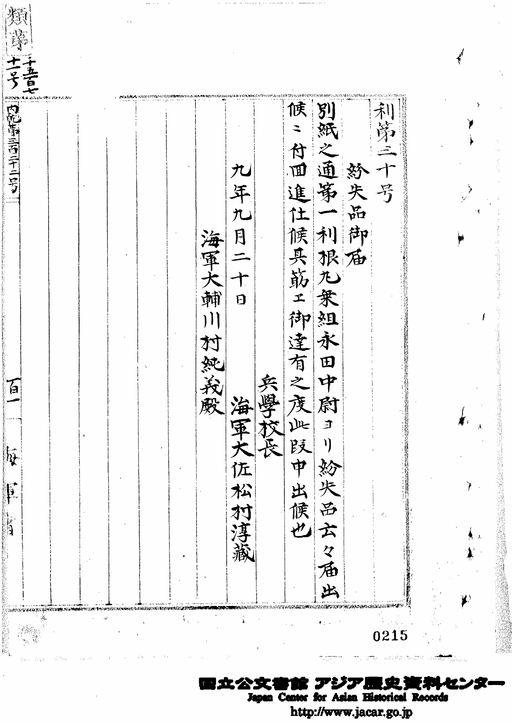 利第三十号
紛失品御届
別紙之通第一利根丸乗組永田中尉ヨリ紛失品云々届出
候ニ付回進仕候其筋エ御達有之度此段申出候也
九年九月二十日
兵學校長
海軍大佐松村淳蔵
海軍大輔川村純義殿
類第
千五百七
十一号
百一
海軍省
0215
国立公文書館 アジア歴史資料センター
Japan Center for Asian Historical Records
http://www.jacar.go.jp